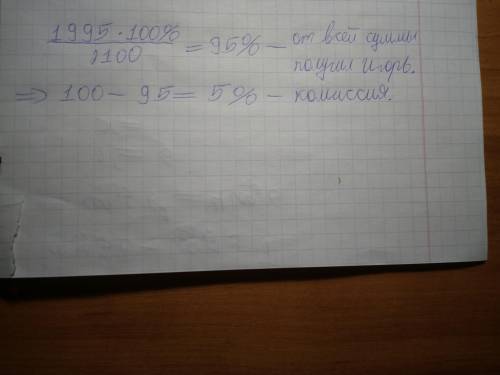 1995·100% / 2100 = 95% – от всей суммы
получил Игорь.
⇒ 100 – 95 = 5% – комиссия.